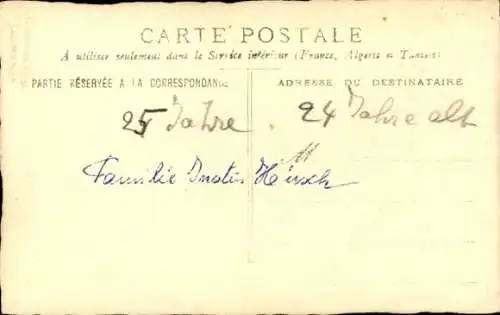 CARTE POSTALE
A utiliser seulement dans le Service intérieur (France, Algérie et Tunisie)
PARTIE RÉSERVÉE A LA CORRESPONDANCE
ADRESSE DU DESTINATAIRE
25 Jahre. 24 Jahre alt
Familie